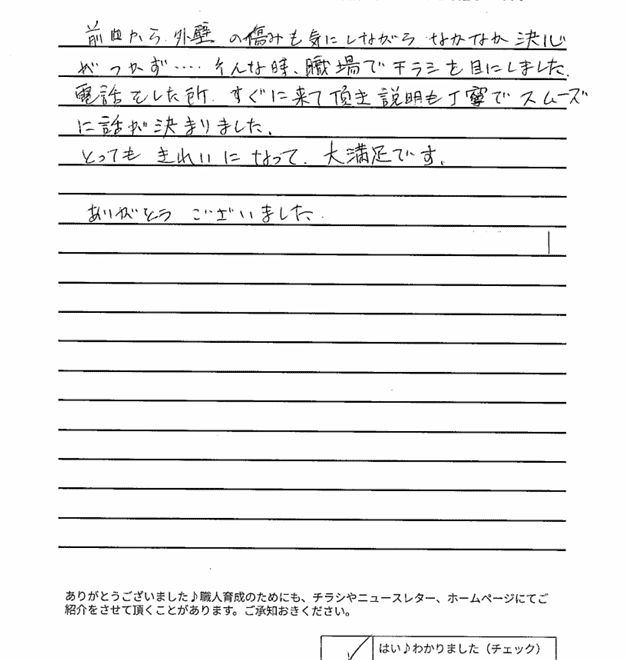 前回から外壁の傷みも気にしながらなかなか決心
がつかず‥‥そんな時、職場でチラシを目にしました。
電話をした所、すぐに来て頂き説明も丁寧でスムーズ
に話が決まりました。
とってもきれいになって、大満足です。
ありがとうございました。
ありがとうございました♪職人育成のためにも、チラシやニュースレター、ホームページにてご
紹介をさせて頂くことがあります。ご承知おきください。
はい♪わかりました（チェック）